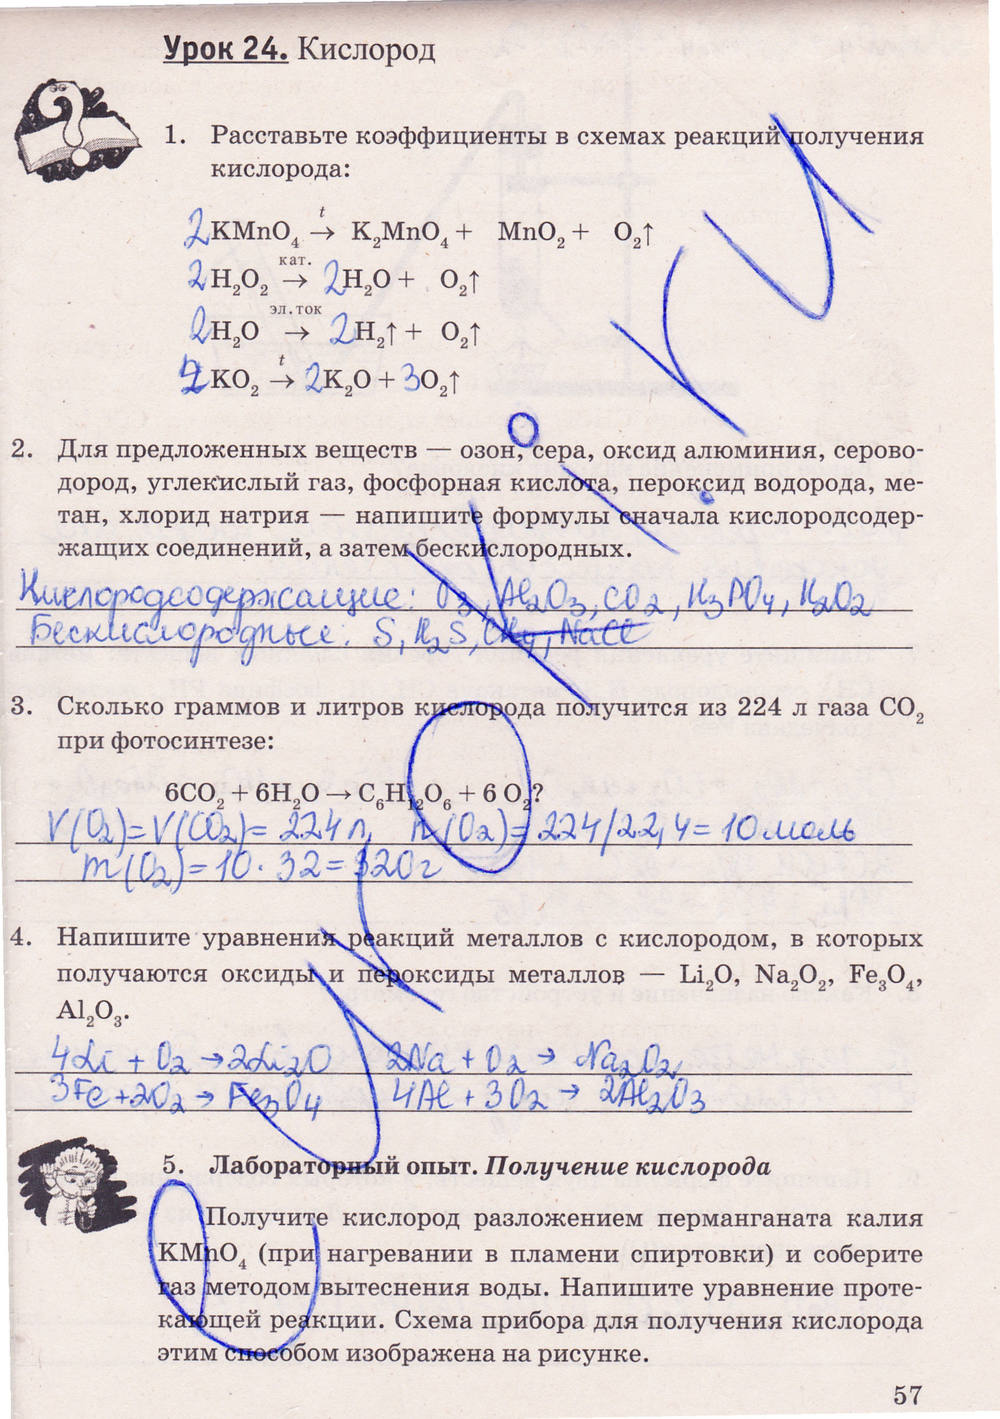 Урок 24. Кислород
1. Расставьте коэффициенты в схемах реакций получения
кислорода:
2KMnO₄ →(t) K₂MnO₄ + MnO₂ + O₂↑
2H₂O₂ →(кат.) 2H₂O + O₂↑
2H₂O →(эл.ток) 2H₂↑ + O₂↑
KO₂ →(t) 2K₂O + 3O₂↑
2. Для предложенных веществ — озон, сера, оксид алюминия, серово-
дород, углекислый газ, фосфорная кислота, пероксид водорода, ме-
тан, хлорид натрия — напишите формулы сначала кислородсодер-
жащих соединений, а затем бескислородных.
Кислородсодержащие: O₃, Al₂O₃, CO₂, H₃PO₄, H₂O₂
Бескислородные: S, H₂S, CH₄, NaCl
3. Сколько граммов и литров кислорода получится из 224 л газа CO₂
при фотосинтезе:
6CO₂ + 6H₂O → C₆H₁₂O₆ + 6 O₂?
V(O₂) = V(CO₂) = 224 л, n(O₂) = 224/22,4 = 10 моль
m(O₂) = 10 · 32 = 320 г
4. Напишите уравнения реакций металлов с кислородом, в которых
получаются оксиды и пероксиды металлов — Li₂O, Na₂O₂, Fe₃O₄,
Al₂O₃.
4Li + O₂ → 2Li₂O 2Na + O₂ → Na₂O₂
3Fe + 2O₂ → Fe₃O₄ 4Al + 3O₂ → 2Al₂O₃
5. Лабораторный опыт. Получение кислорода
Получите кислород разложением перманганата калия
KMnO₄ (при нагревании в пламени спиртовки) и соберите
газ методом вытеснения воды. Напишите уравнение проте-
кающей реакции. Схема прибора для получения кислорода
этим способом изображена на рисунке.
57